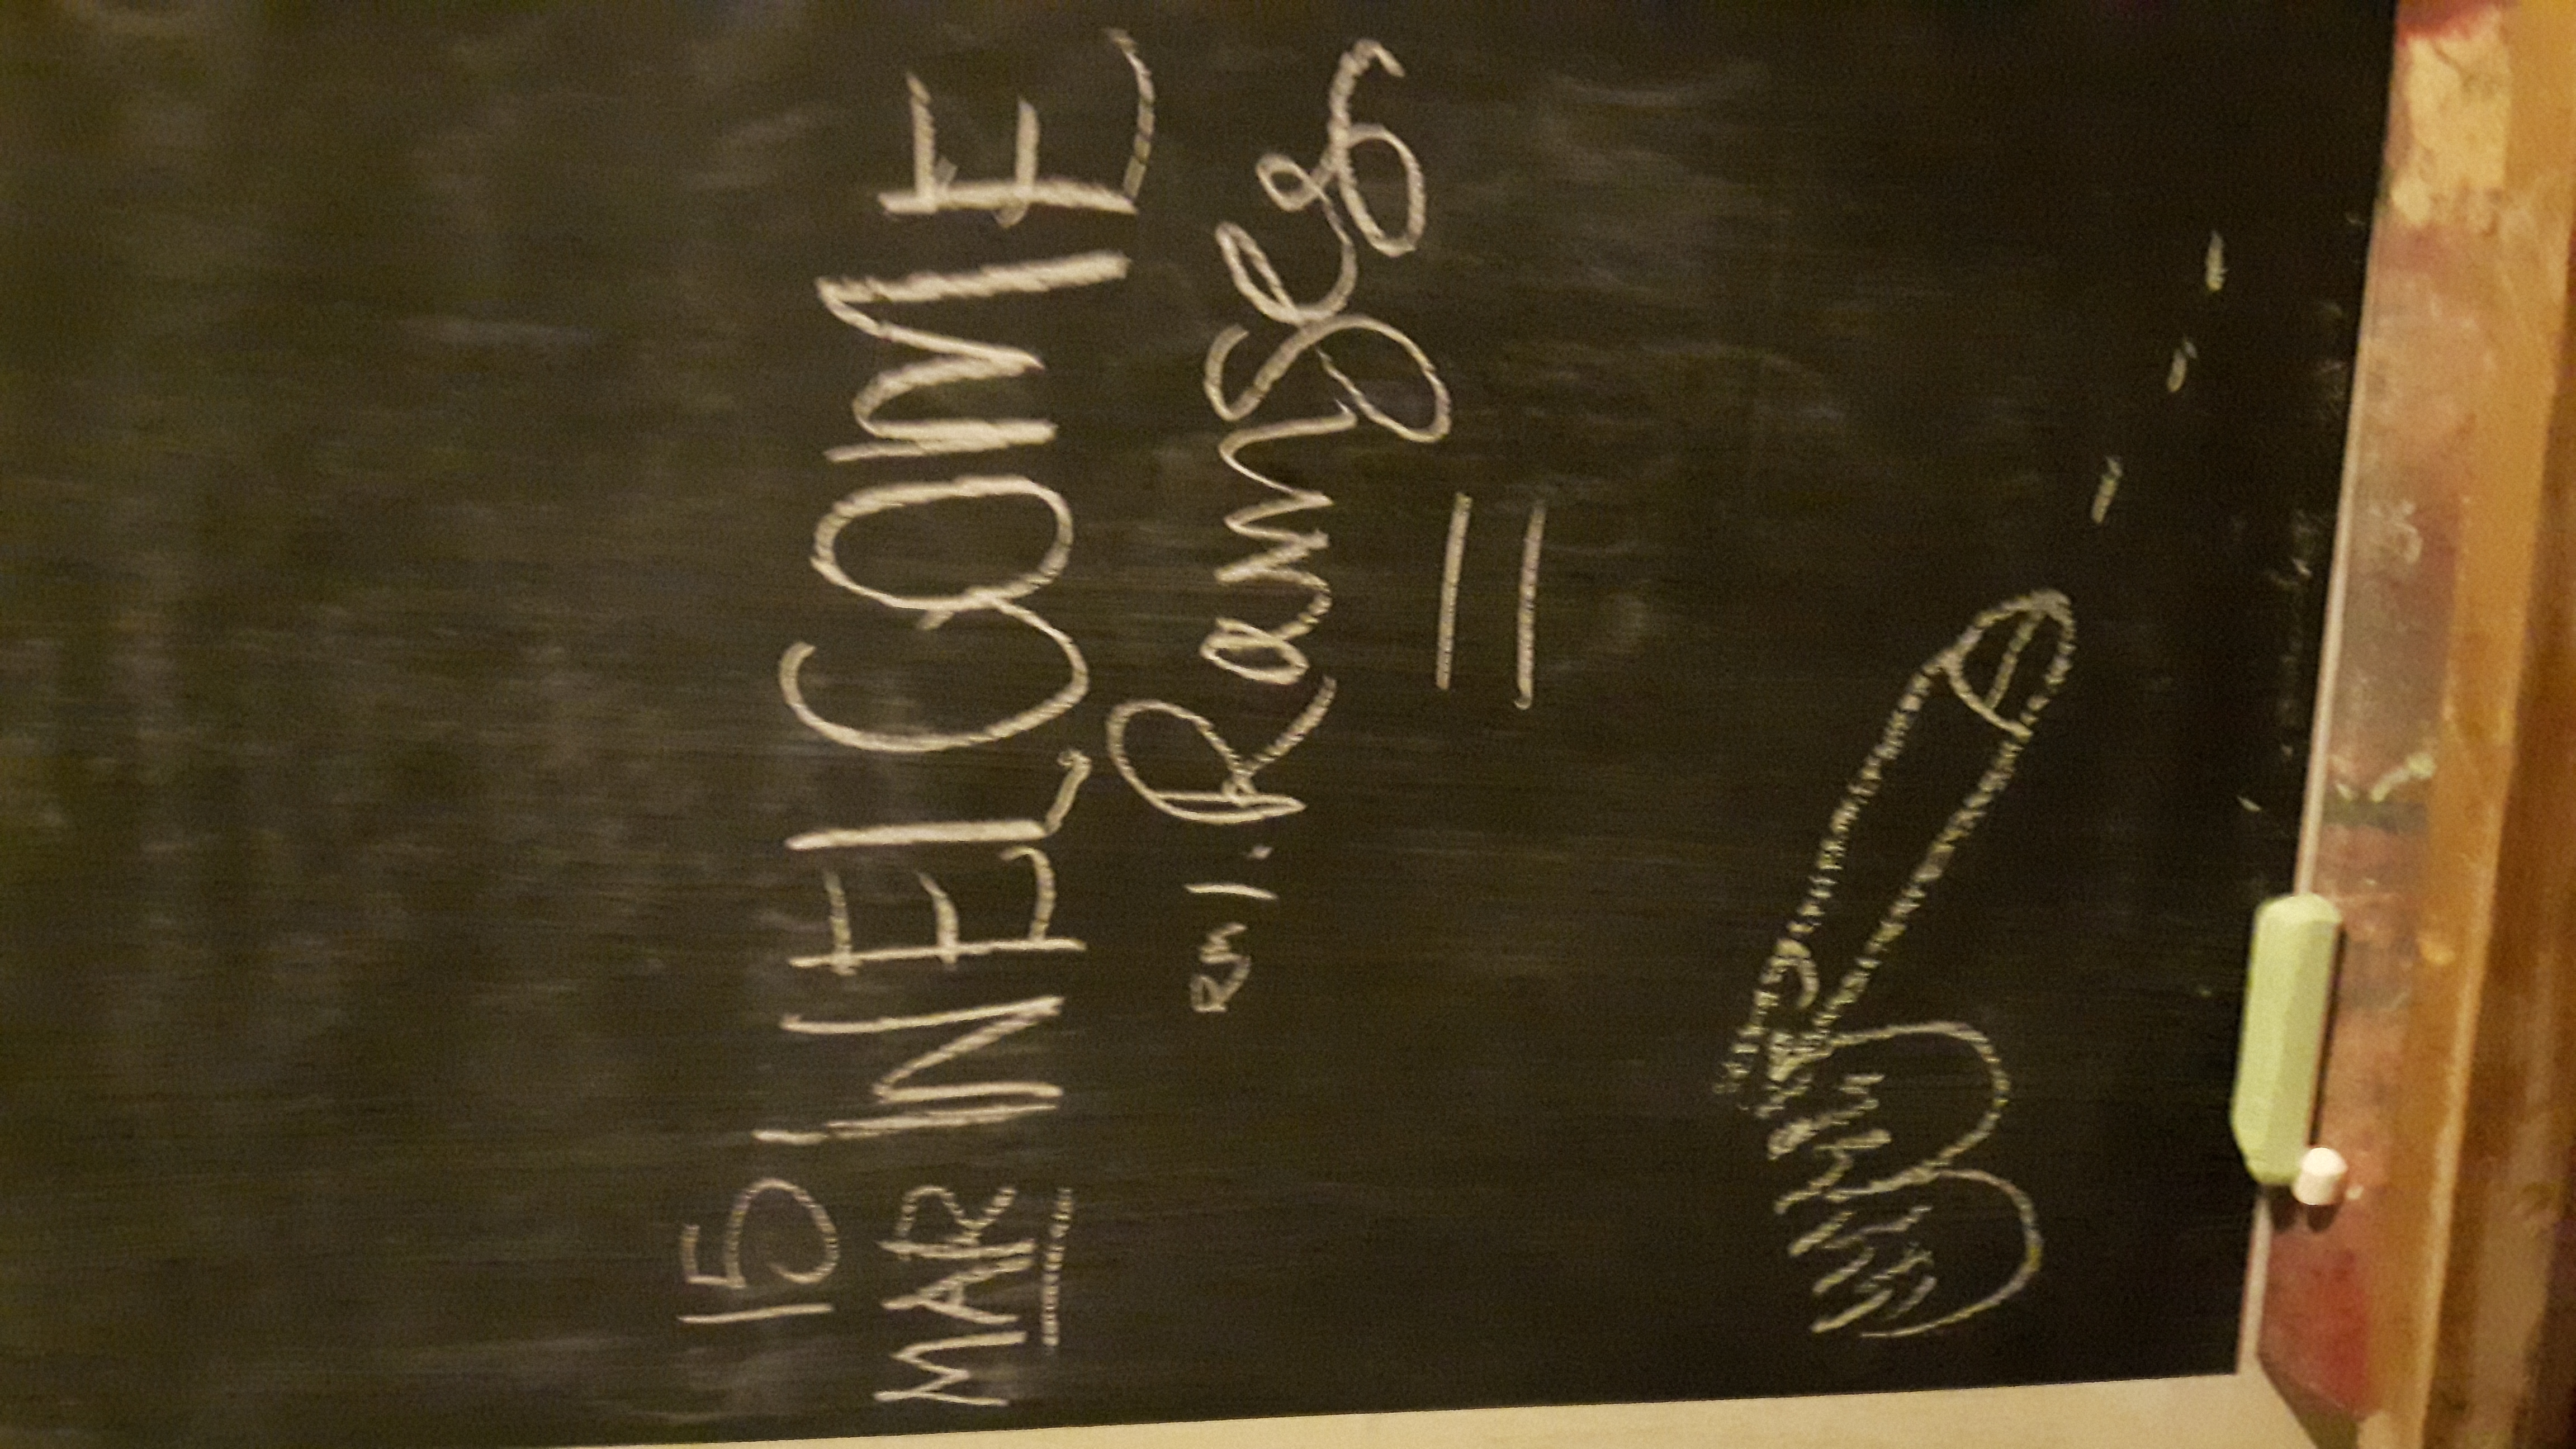 15
MAR
WELCOME
RM 1. Ramses